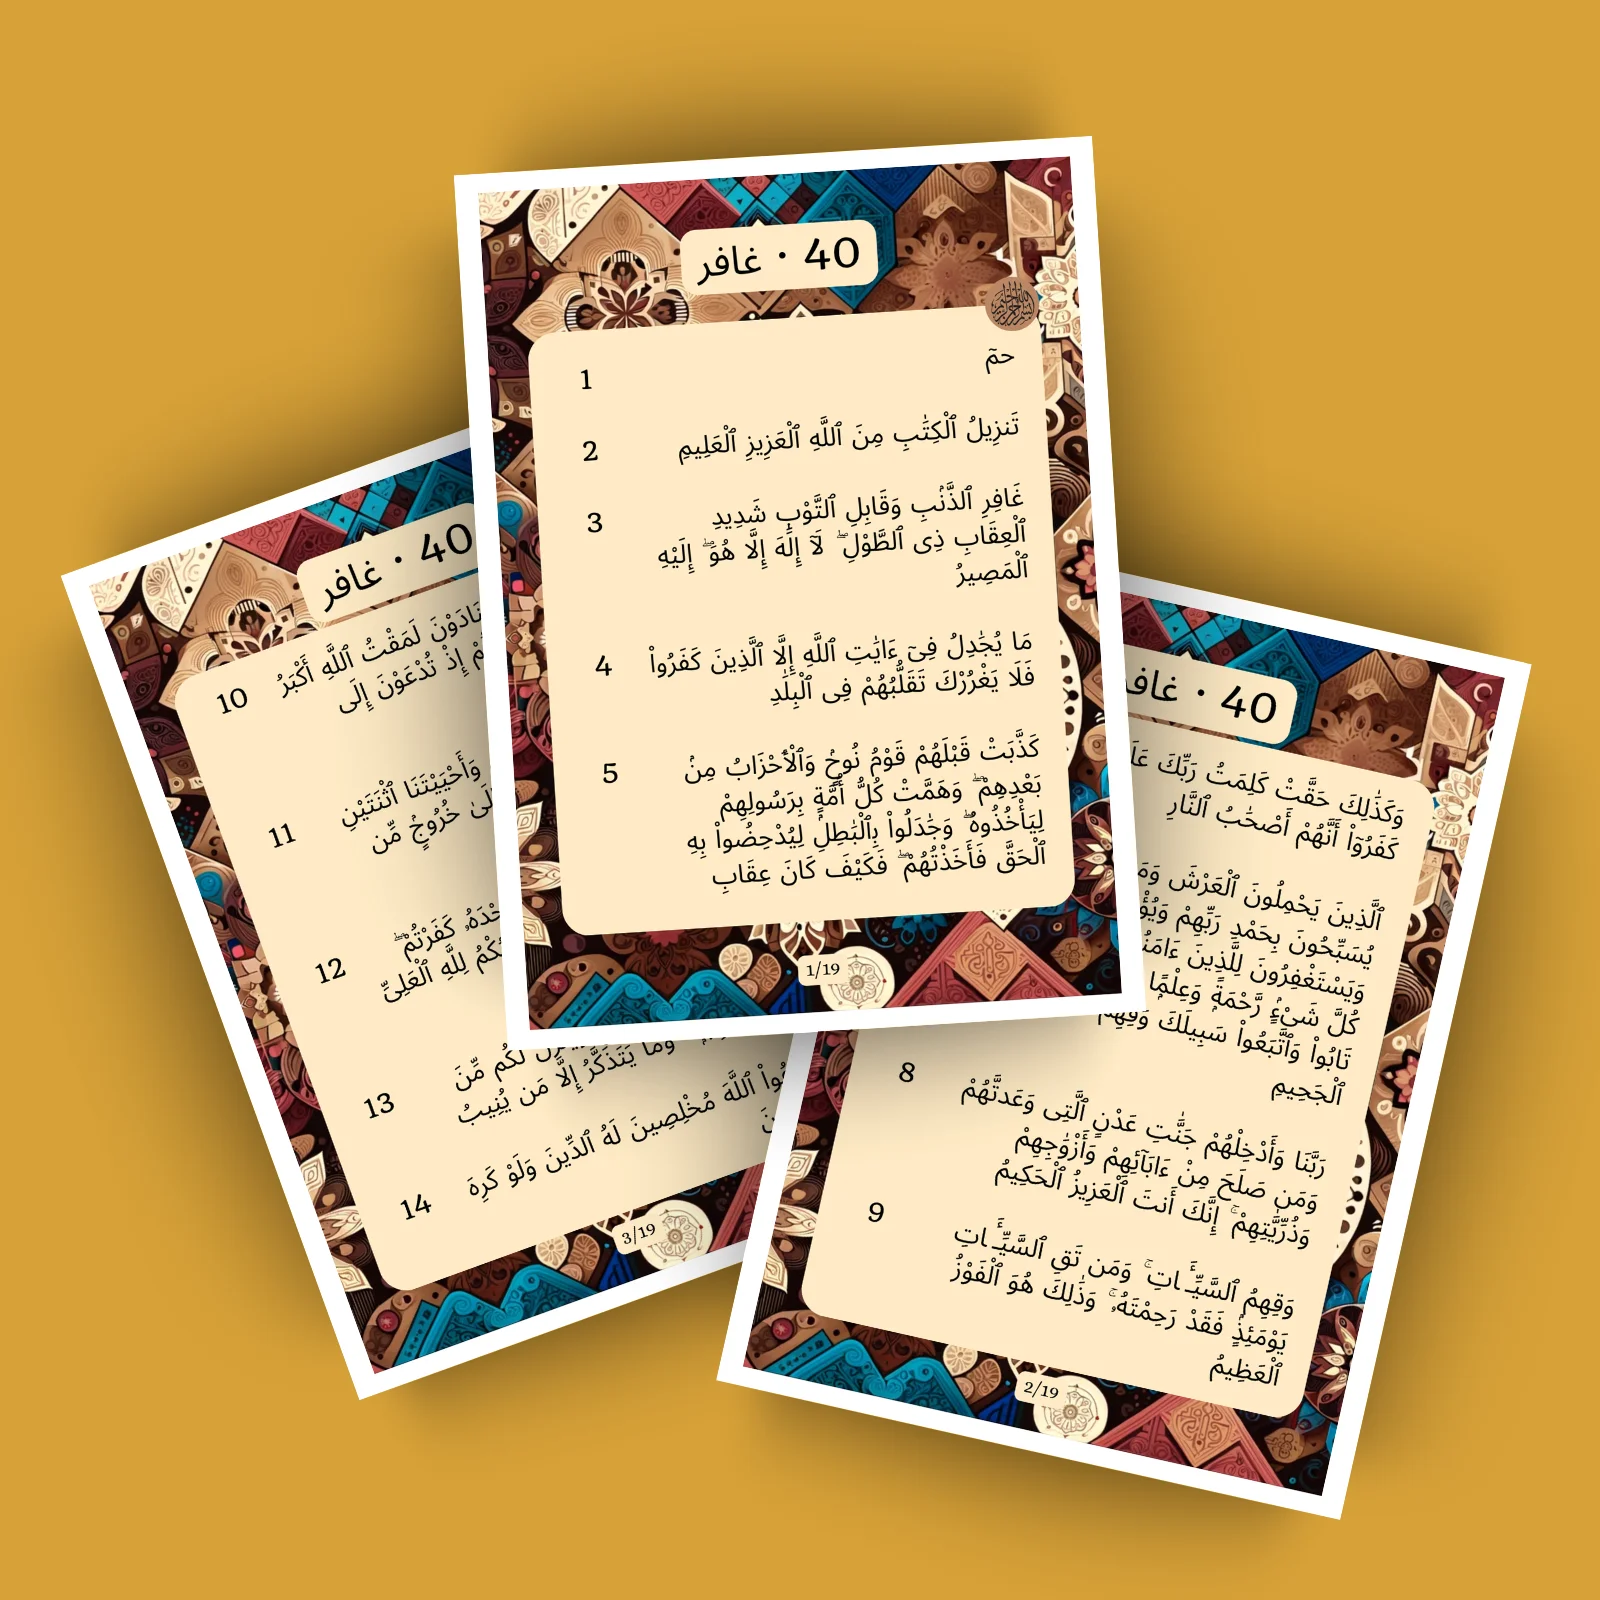 40 · غافر
حمٓ
1
تَنزِيلُ ٱلْكِتَٰبِ مِنَ ٱللَّهِ ٱلْعَزِيزِ ٱلْعَلِيمِ
2
غَافِرِ ٱلذَّنۢبِ وَقَابِلِ ٱلتَّوْبِ شَدِيدِ
3
ٱلْعِقَابِ ذِى ٱلطَّوْلِ ۖ لَآ إِلَٰهَ إِلَّا هُوَ ۖ إِلَيْهِ
ٱلْمَصِيرُ
مَا يُجَٰدِلُ فِىٓ ءَايَٰتِ ٱللَّهِ إِلَّا ٱلَّذِينَ كَفَرُوا۟
4
فَلَا يَغْرُرْكَ تَقَلُّبُهُمْ فِى ٱلْبِلَٰدِ
كَذَّبَتْ قَبْلَهُمْ قَوْمُ نُوحٍ وَٱلْأَحْزَابُ مِنۢ
5
بَعْدِهِمْ ۖ وَهَمَّتْ كُلُّ أُمَّةٍۭ بِرَسُولِهِمْ
لِيَأْخُذُوهُ ۖ وَجَٰدَلُوا۟ بِٱلْبَٰطِلِ لِيُدْحِضُوا۟ بِهِ
ٱلْحَقَّ فَأَخَذْتُهُمْ ۖ فَكَيْفَ كَانَ عِقَابِ
1/19
40 · غافر
وَكَذَٰلِكَ حَقَّتْ كَلِمَتُ رَبِّكَ
كَفَرُوٓا۟ أَنَّهُمْ أَصْحَٰبُ ٱلنَّارِ
ٱلَّذِينَ يَحْمِلُونَ ٱلْعَرْشَ
يُسَبِّحُونَ بِحَمْدِ رَبِّهِمْ
وَيَسْتَغْفِرُونَ لِلَّذِينَ
كُلَّ شَىْءٍ رَّحْمَةً وَعِلْمًا
تَابُوا۟ وَٱتَّبَعُوا۟ سَبِيلَكَ وَقِهِمْ
ٱلْجَحِيمِ
رَبَّنَا وَأَدْخِلْهُمْ جَنَّٰتِ عَدْنٍ ٱلَّتِى وَعَدتَّهُمْ
8
وَمَن صَلَحَ مِنْ ءَابَآئِهِمْ وَأَزْوَٰجِهِمْ
وَذُرِّيَّٰتِهِمْ ۚ إِنَّكَ أَنتَ ٱلْعَزِيزُ ٱلْحَكِيمُ
وَقِهِمُ ٱلسَّيِّـَٔاتِ ۚ وَمَن تَقِ ٱلسَّيِّـَٔاتِ
9
يَوْمَئِذٍ فَقَدْ رَحِمْتَهُۥ ۚ وَذَٰلِكَ هُوَ ٱلْفَوْزُ
ٱلْعَظِيمُ
2/19
40 · غافر
لَمَقْتُ ٱللَّهِ أَكْبَرُ
10
إِذْ تُدْعَوْنَ إِلَى
وَأَحْيَيْتَنَا ٱثْنَتَيْنِ
11
خُرُوجٍ مِّن
كَفَرْتُمْ ۖ
12
لِلَّهِ ٱلْعَلِىِّ
لَكُم مِّنَ
13
وَمَا يَتَذَكَّرُ إِلَّا مَن يُنِيبُ
ٱللَّهَ مُخْلِصِينَ لَهُ ٱلدِّينَ وَلَوْ كَرِهَ
14
3/19